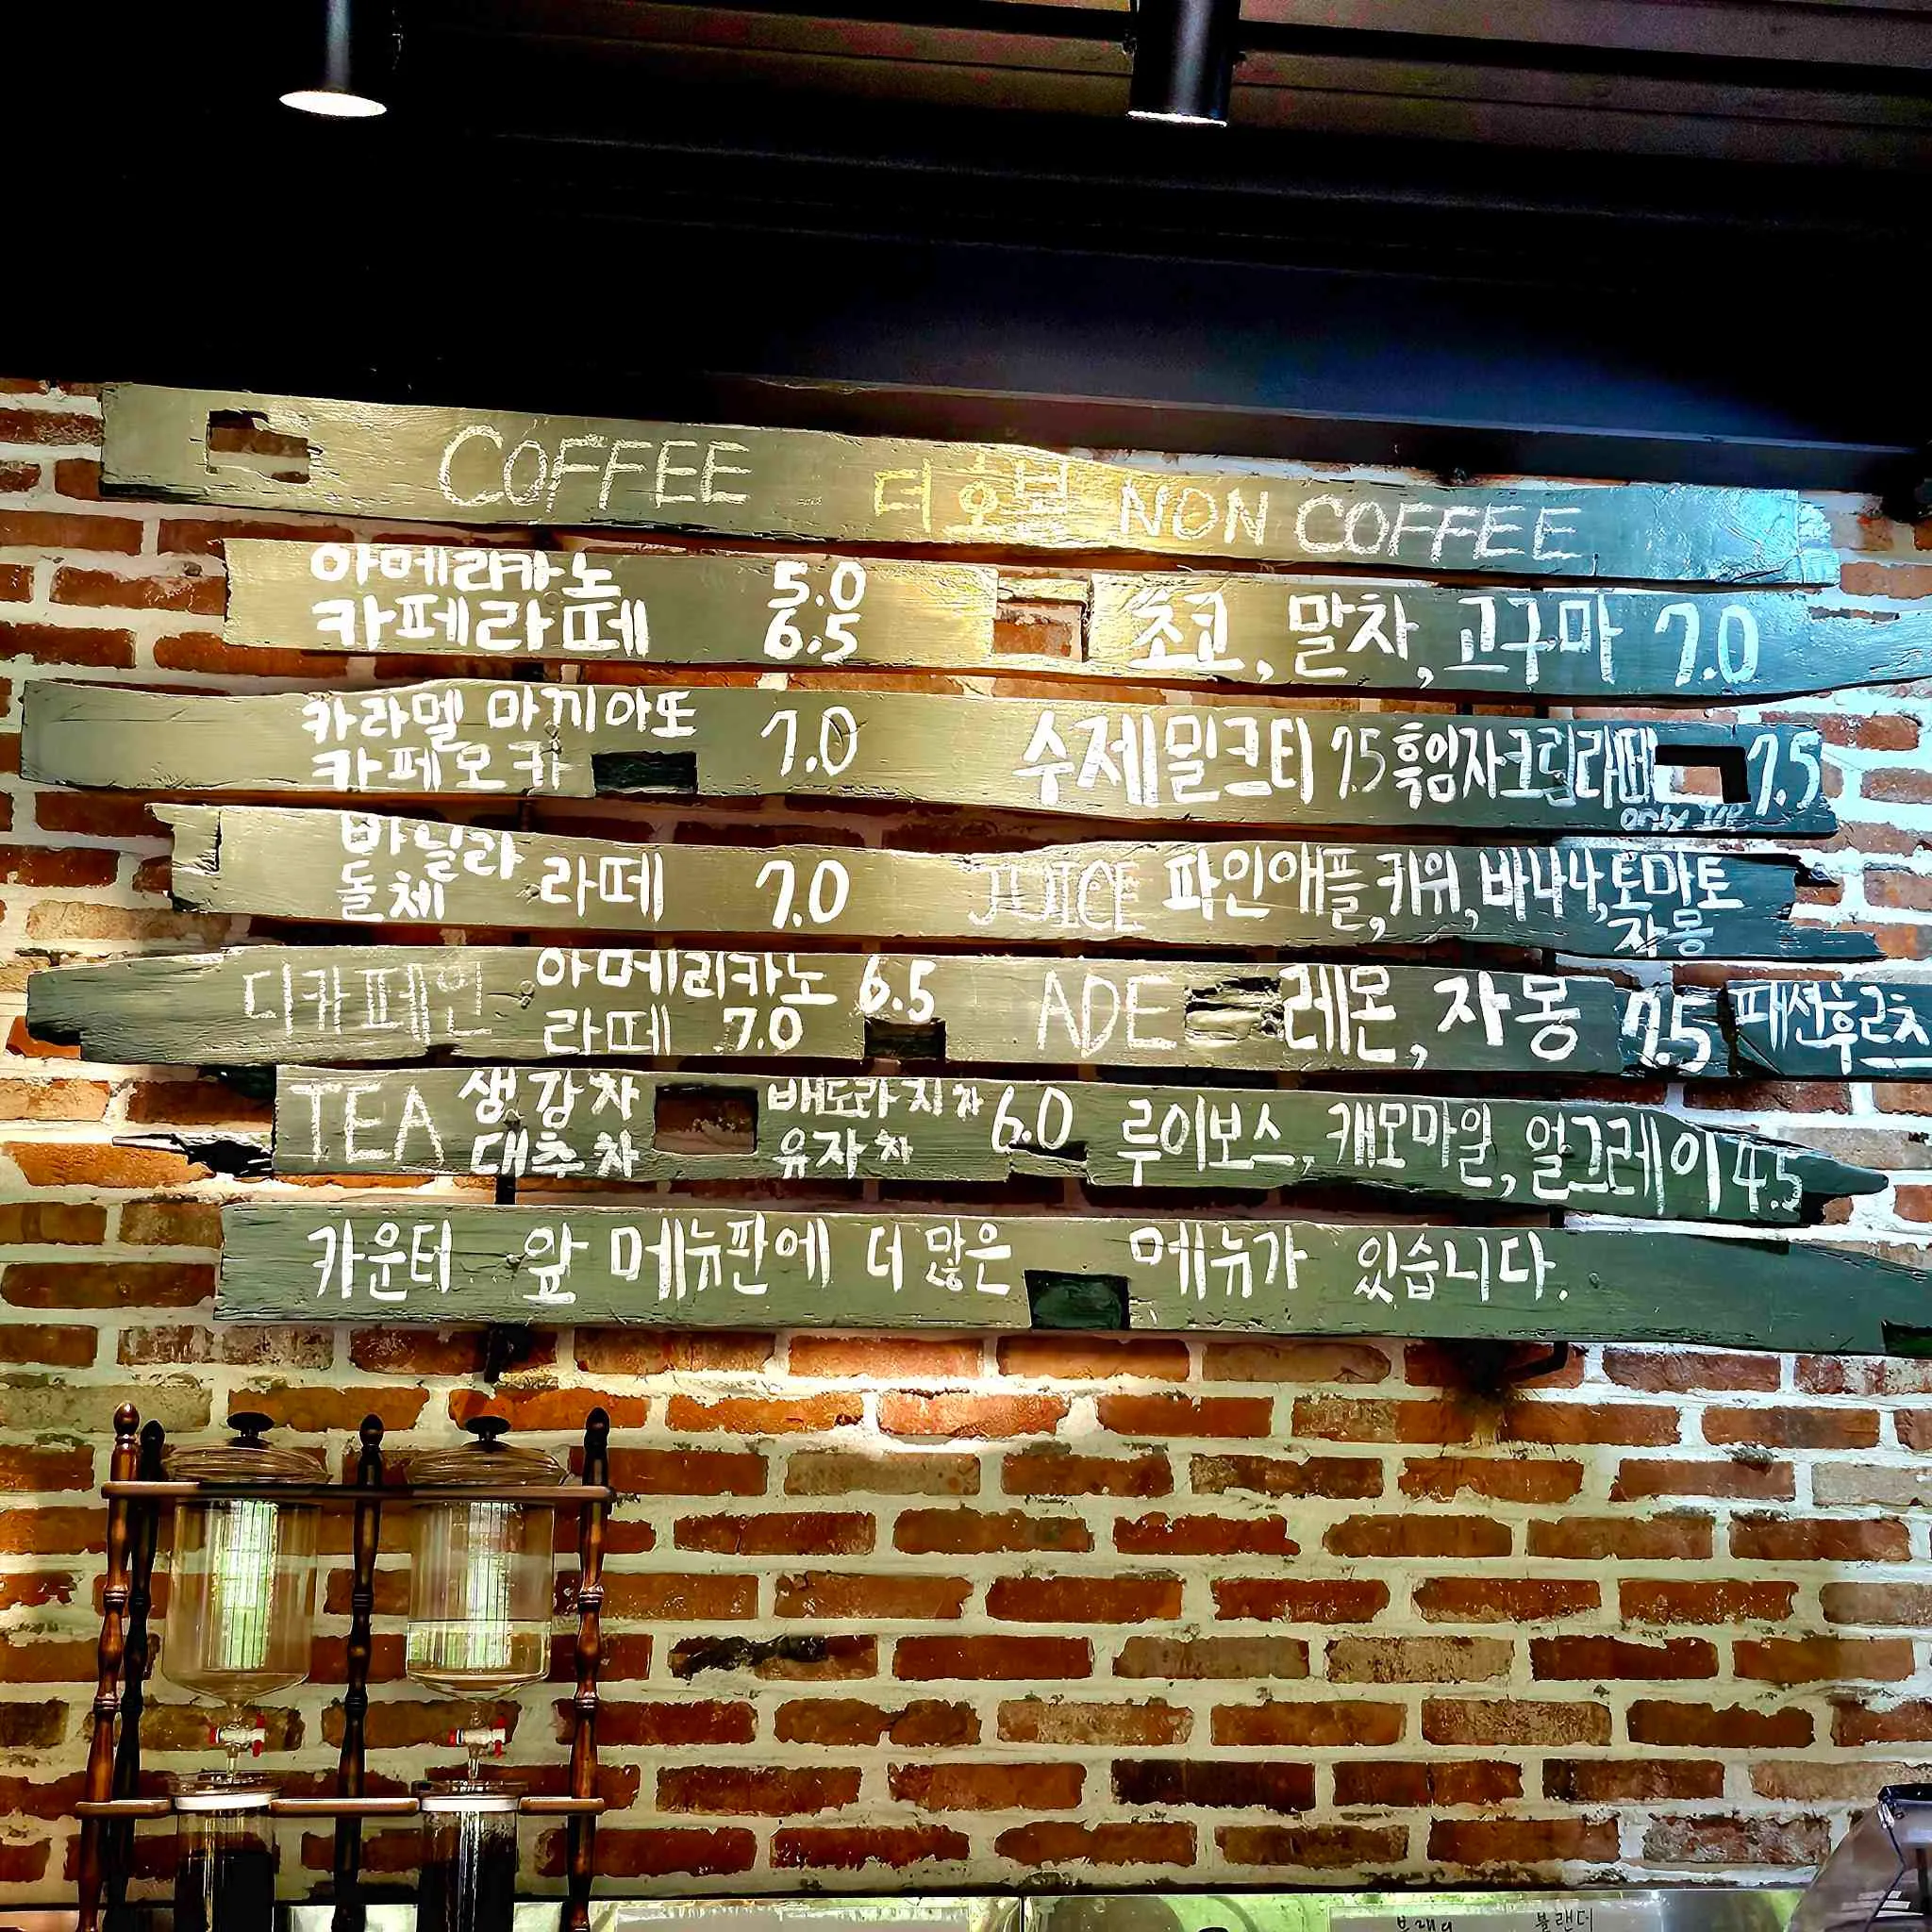 COFFEE 더오븐 NON COFFEE
아메리카노 5.0
카페라떼 6.5
초코, 말차, 고구마 7.0
카라멜 마끼아또
카페모카 7.0
수제밀크티 7.5 흑임자크림라떼 7.5
only ICE
바닐라
돌체 라떼 7.0
JUICE 파인애플, 키위, 바나나, 토마토
자몽
디카페인 아메리카노 6.5
라떼 7.0
ADE 레몬, 자몽 7.5 패션후르츠
TEA 생강차 배도라지차 6.0
대추차 유자차
루이보스, 캐모마일, 얼그레이 4.5
카운터 앞 메뉴판에 더 많은 메뉴가 있습니다.
블랜디